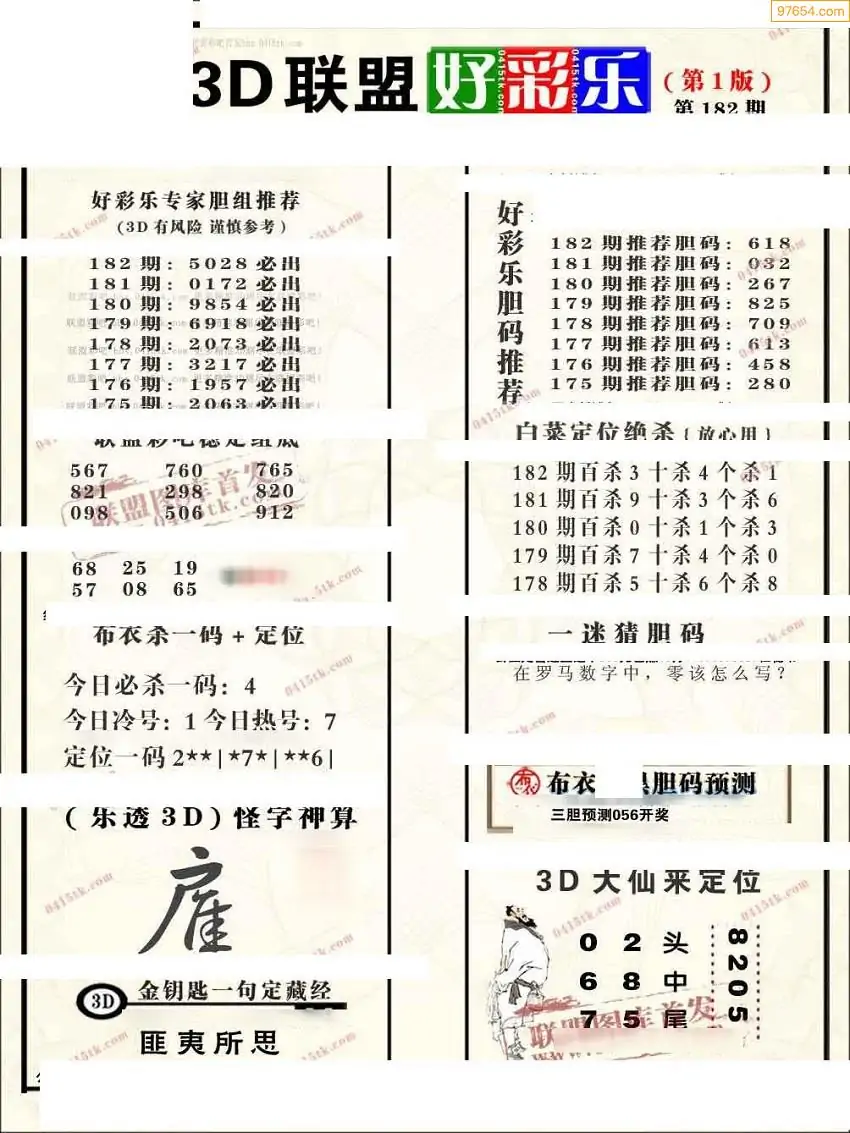 97654.com
3D联盟好彩乐(第1版)
第182期
好彩乐专家胆组推荐
(3D有风险 谨慎参考)
182期:5028必出
181期:0172必出
180期:9854必出
179期:6918必出
178期:2073必出
177期:3217必出
176期:1957必出
175期:2063必出
联盟彩吧稳定组底
567 760 765
821 298 820
098 506 912
68 25 19
57 08 65
布衣杀一码+定位
今日必杀一码: 4
今日冷号: 1 今日热号: 7
定位一码 2**|*7*|**6|
(乐透3D)怪字神算
雇
3D 金钥匙一句定藏经
匪夷所思
好彩乐胆码推荐
182期推荐胆码: 618
181期推荐胆码: 032
180期推荐胆码: 267
179期推荐胆码: 825
178期推荐胆码: 709
177期推荐胆码: 613
176期推荐胆码: 458
175期推荐胆码: 280
白菜定位绝杀{放心用}
182期百杀3十杀4个杀1
181期百杀9十杀3个杀6
180期百杀0十杀1个杀3
179期百杀7十杀4个杀0
178期百杀5十杀6个杀8
一迷猜胆码
在罗马数字中，零该怎么写?
布衣 胆码预测
三胆预测056开奖
3D大仙来定位
0 2 头
6 8 中
7 5 尾
8205
联盟图库首发
0415tk.com